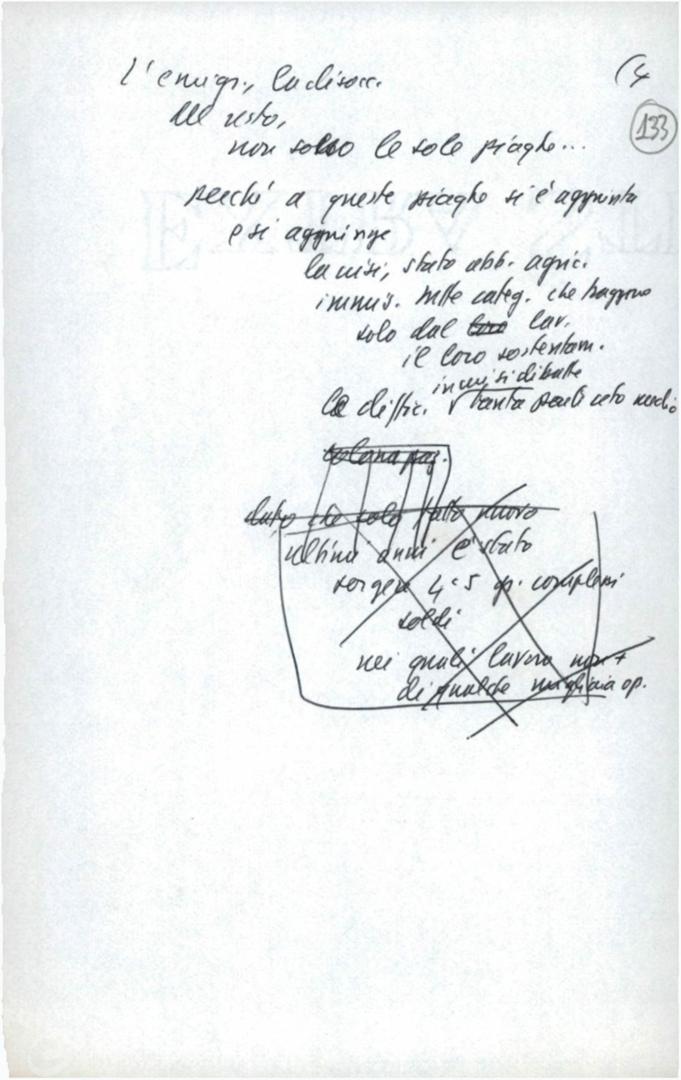 L'emigr., la disocc. (4
133
Del resto,
non sono le sole piaghe...
perché a queste piaghe si è aggiunta
e si aggiunge
la crisi, stato abb. agric.
immis. tutte categ. che traggono
solo dal loro lav.
il loro sostentam.
in cui si dibatte
la diffic. tanta parte ceto medio
ultimi anni è stato
sorgere 4 o 5 gr. complessi
soldi
nei quali lavora non +
di qualche migliaia op.